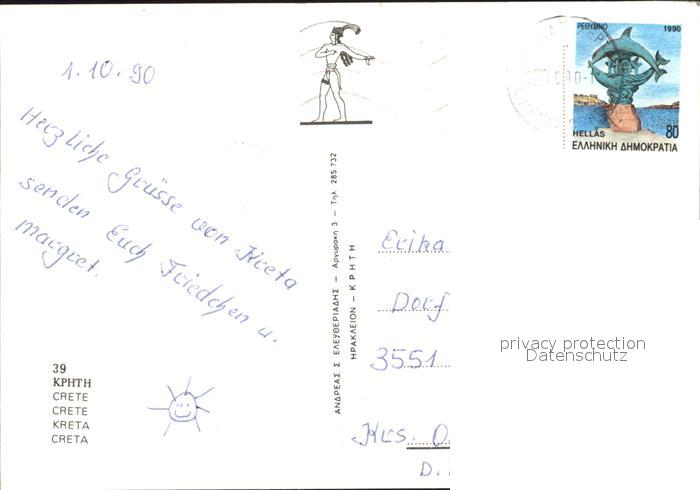 1.10.90
Herzliche Grüsse von Kreta
senden Euch Friedchen u.
Margret.
39
ΚΡΗΤΗ
CRETE
CRETE
KRETA
CRETA
ΑΝΔΡΕΑΣ Σ ΕΛΕΥΘΕΡΙΑΔΗΣ – Αργυράκη 3 – Τηλ 285 732
ΗΡΑΚΛΕΙΟΝ – ΚΡΗΤΗ
ΡΕΘΥΜΝΟ 1990
HELLAS 80
ΕΛΛΗΝΙΚΗ ΔΗΜΟΚΡΑΤΙΑ
Erika
Dorf
3551
Krs.
D.
privacy protection
Datenschutz